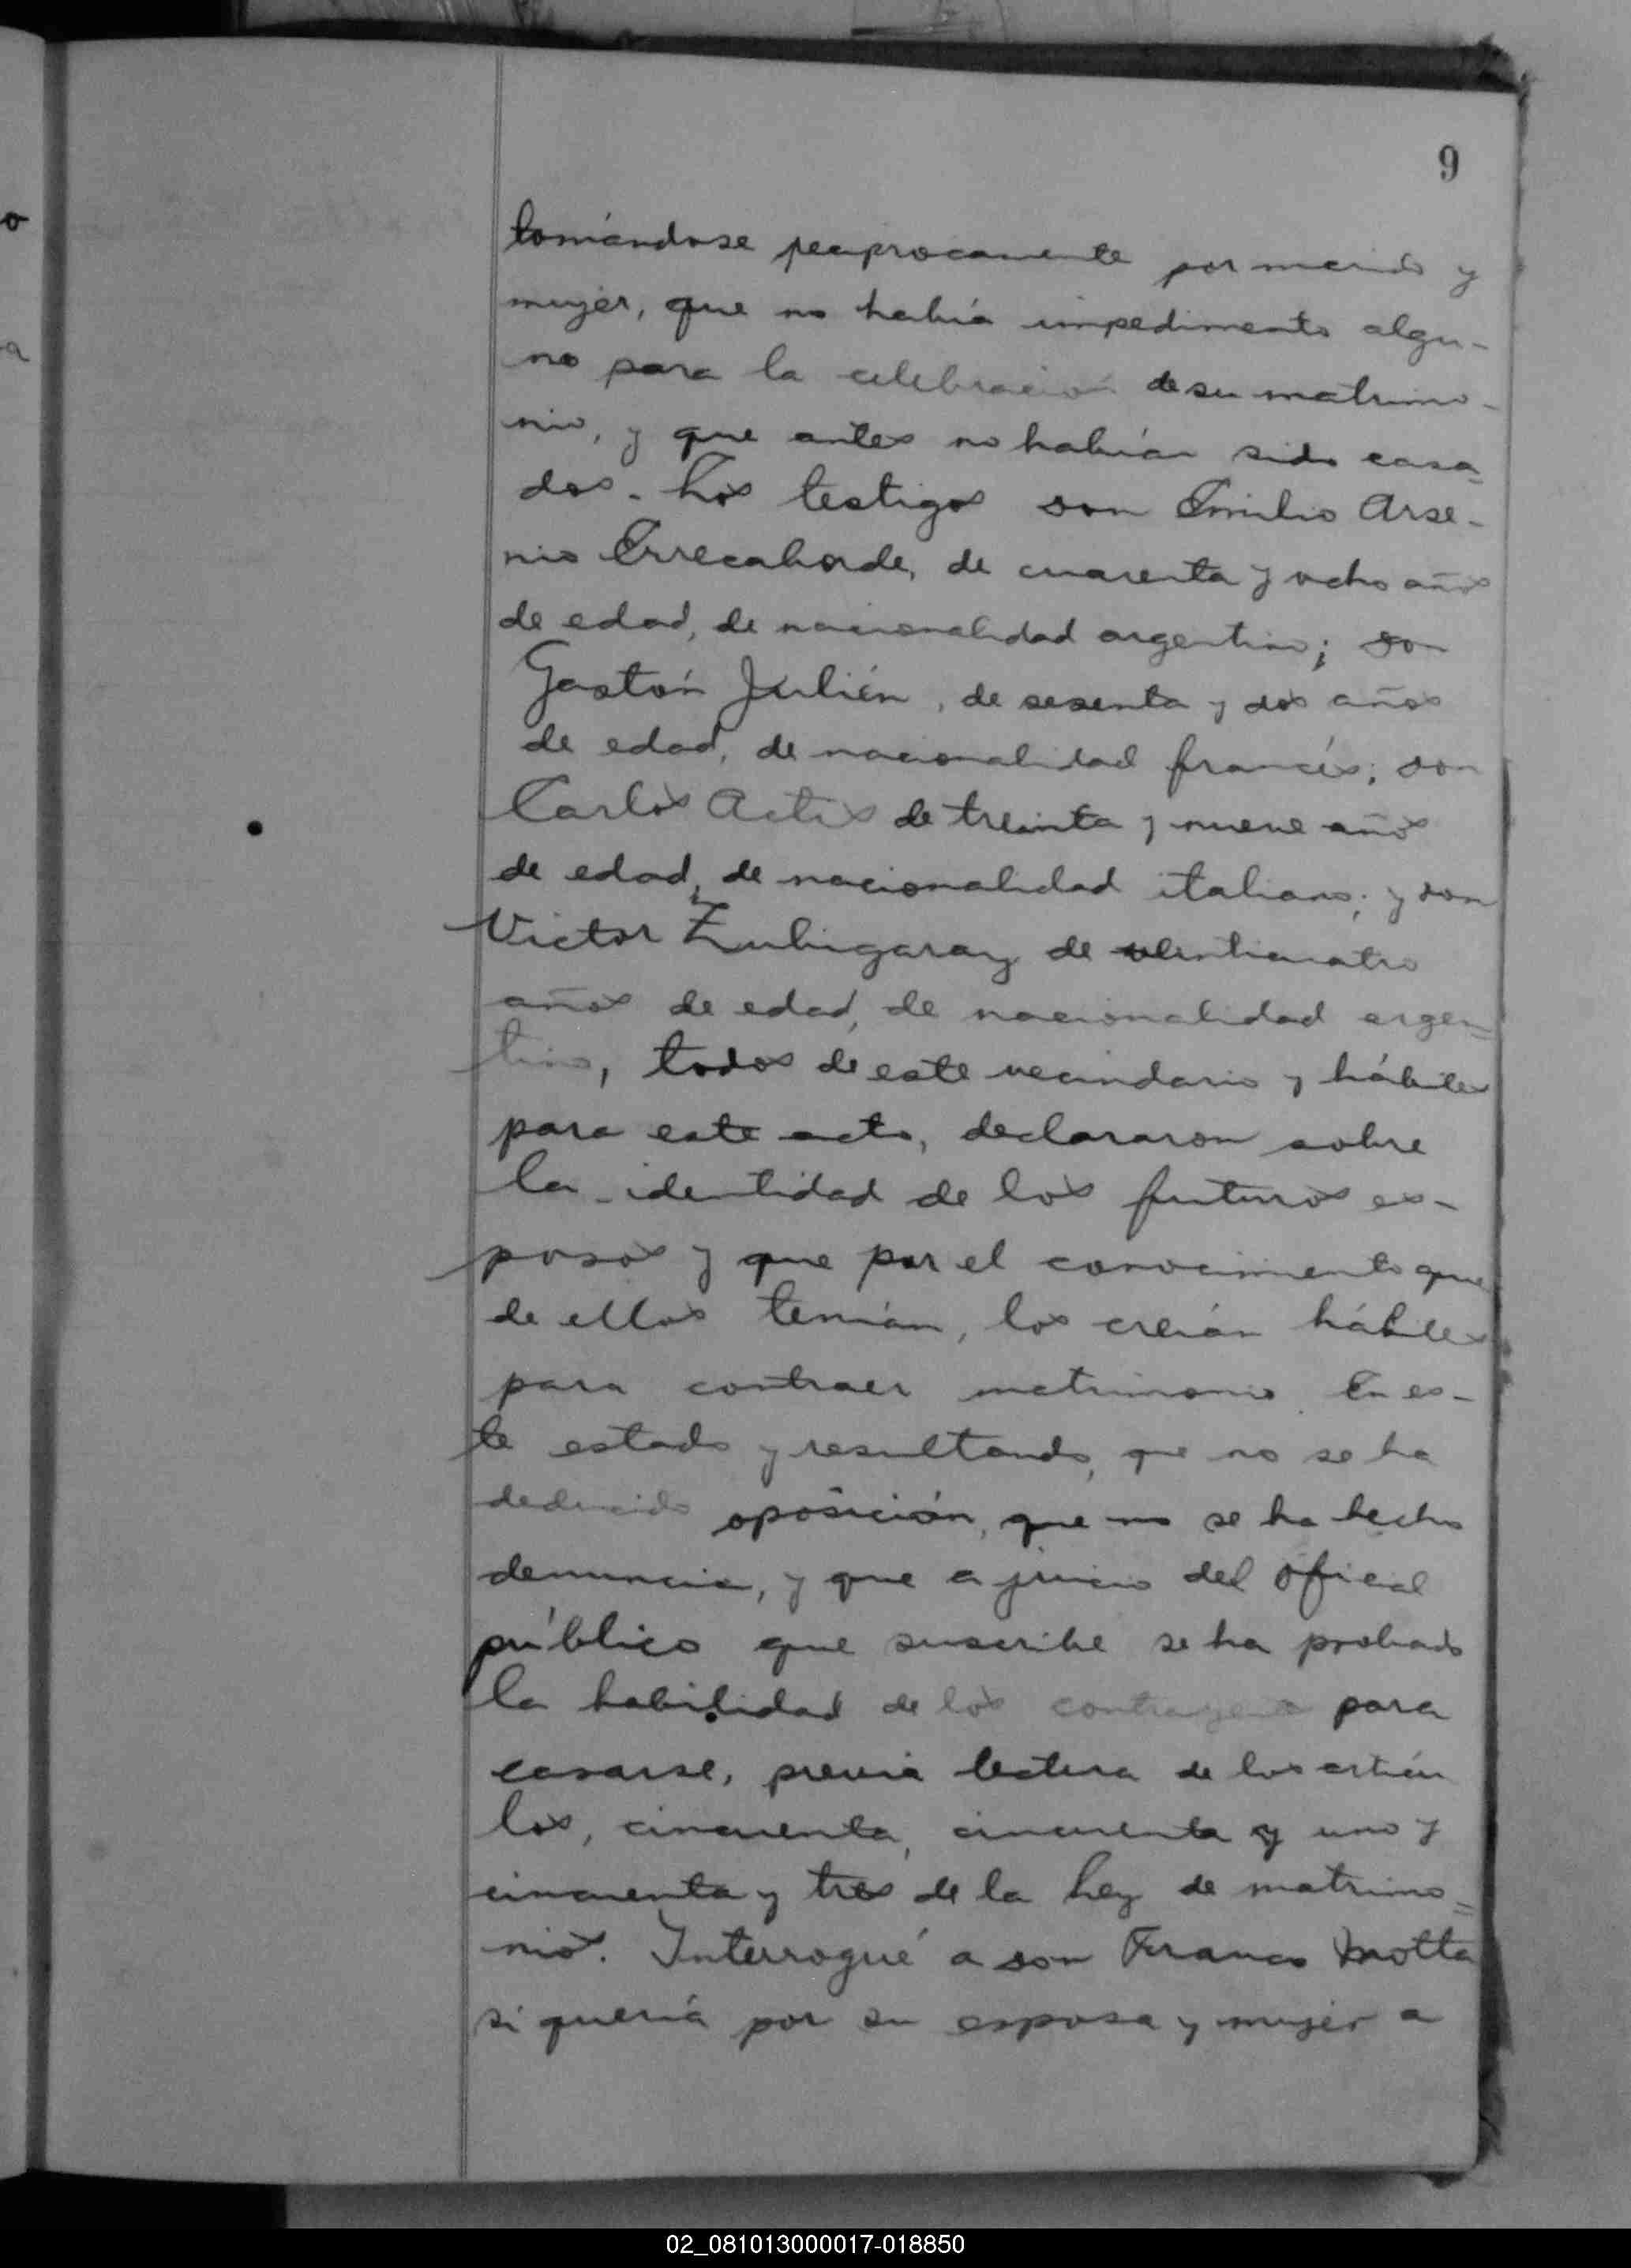 9
tomándose reciprocamente por marido y
mujer, que no había impedimento algu-
no para la celebración de su matrimo-
nio, y que antes no habían sido casa=
dos. Los testigos don Emilio Arse-
nio Errecaborde, de cuarenta y ocho años
de edad, de nacionalidad argentino; don
Gastón Julién, de sesenta y dos años
de edad, de nacionalidad francés; don
Carlos Actis de treinta y nueve años
de edad, de nacionalidad italiano; y don
Victor Zubigaray de veinticuatro
años de edad, de nacionalidad argen=
tino, todos de este vecindario y hábiles
para este acto, declararon sobre
la identidad de los futuros es-
posos y que por el conocimiento que
de ellos tenían, los creían hábiles
para contraer matrimonio. En es-
te estado y resultando, que no se ha
deducido oposición, que no se ha hecho
denuncia, y que a juicio del oficial
público que suscribe se ha probado
la habilidad de los contrayentes para
casarse, previa lectura de los artícu
los, cincuenta, cincuenta y uno y
cincuenta y tres de la Ley de matrimo=
nios. Interrogué a don Franco Motta
si quería por su esposa y mujer a
02_081013000017-018850